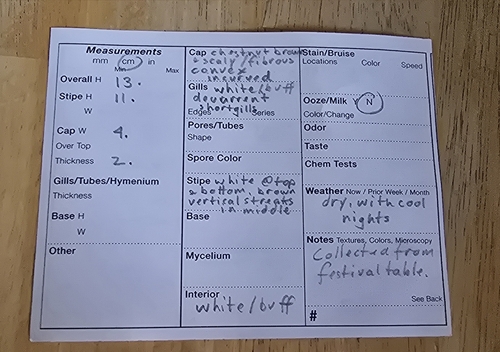 Measurements
mm cm in
Min Max
Overall H 13.
Stipe H 11.
W
Cap W 4.
Over Top
Thickness 2.
Gills/Tubes/Hymenium
Thickness
Base H
W
Other
Cap chestnut brown
& scaly/fibrous
convex
incurved
Gills white/buff
devurrent
shortgills
Edges Series
Pores/Tubes
Shape
Spore Color
Stipe white @ top
& bottom, brown
vertical streats
in middle
Base
Mycelium
Interior white/buff
Stain/Bruise
Locations Color Speed
Ooze/Milk Y N
Color/Change
Odor
Taste
Chem Tests
Weather Now / Prior Week / Month
dry, with cool
nights
Notes Textures, Colors, Microscopy
Collected from
festival table.
See Back
#